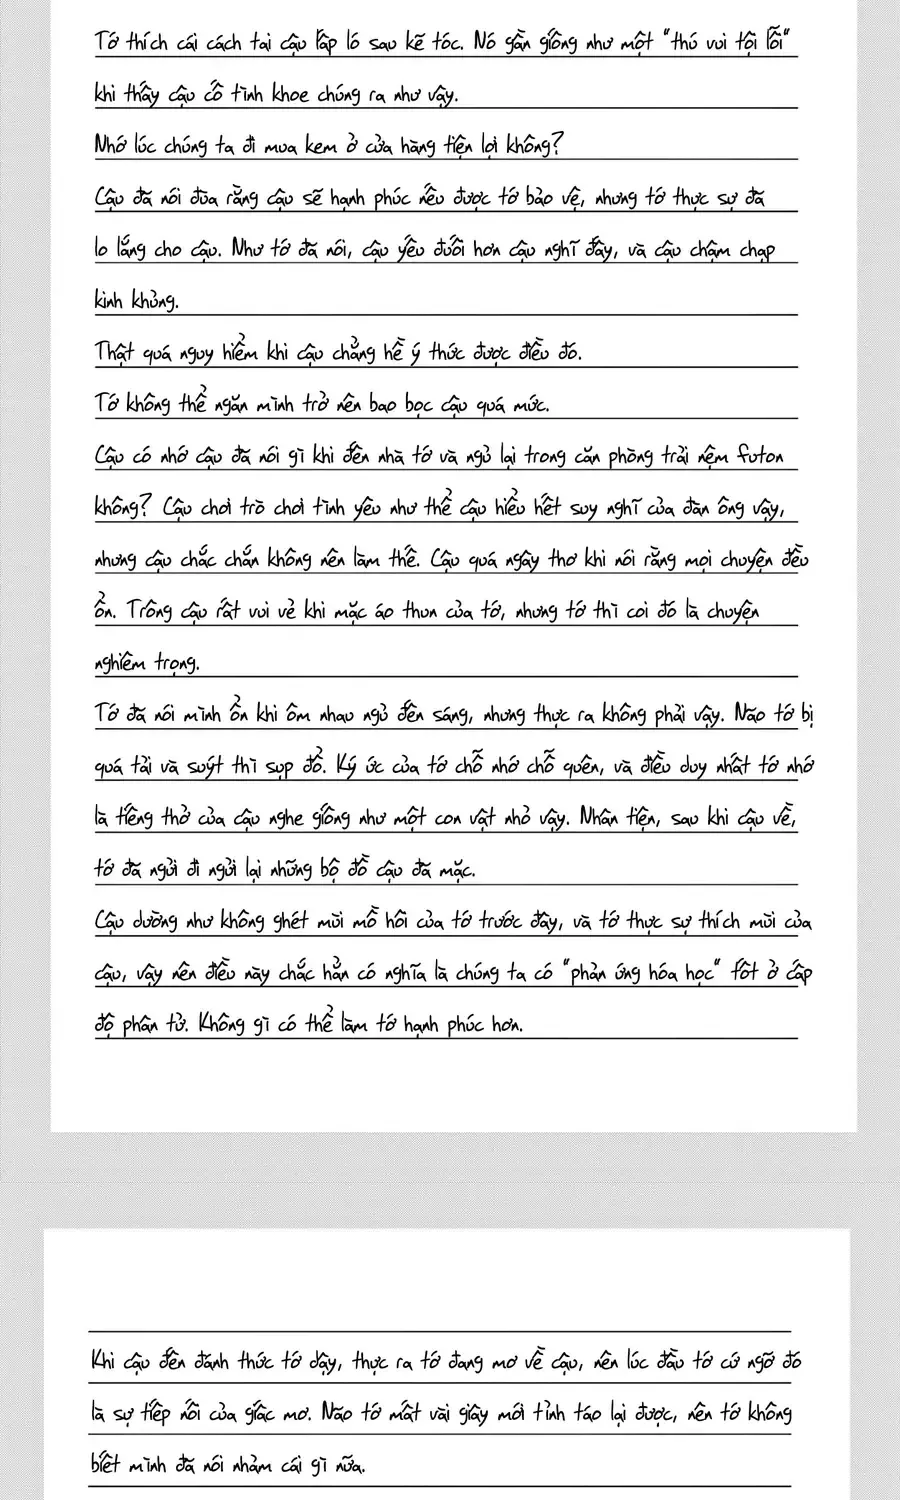 Tớ thích cái cách tai cậu lấp ló sau kẽ tóc. Nó gần giống như một "thú vui tội lỗi"
khi thấy cậu cố tình khoe chúng ra như vậy.
Nhớ lúc chúng ta đi mua kem ở cửa hàng tiện lợi không?
Cậu đã nói đùa rằng cậu sẽ hạnh phúc nếu được tớ bảo vệ, nhưng tớ thực sự đã
lo lắng cho cậu. Như tớ đã nói, cậu yếu đuối hơn cậu nghĩ đấy, và cậu chậm chạp
kinh khủng.
Thật quá nguy hiểm khi cậu chẳng hề ý thức được điều đó.
Tớ không thể ngăn mình trở nên bao bọc cậu quá mức.
Cậu có nhớ cậu đã nói gì khi đến nhà tớ và ngủ lại trong căn phòng trải nệm futon
không? Cậu chơi trò chơi tình yêu như thể cậu hiểu hết suy nghĩ của đàn ông vậy,
nhưng cậu chắc chắn không nên làm thế. Cậu quá ngây thơ khi nói rằng mọi chuyện đều
ổn. Trông cậu rất vui vẻ khi mặc áo thun của tớ, nhưng tớ thì coi đó là chuyện
nghiêm trọng.
Tớ đã nói mình ổn khi ôm nhau ngủ đến sáng, nhưng thực ra không phải vậy. Não tớ bị
quá tải và suýt thì sụp đổ. Ký ức của tớ chỗ nhớ chỗ quên, và điều duy nhất tớ nhớ
là tiếng thở của cậu nghe giống như một con vật nhỏ vậy. Nhân tiện, sau khi cậu về,
tớ đã ngửi đi ngửi lại những bộ đồ cậu đã mặc.
Cậu dường như không ghét mùi mồ hôi của tớ trước đây, và tớ thực sự thích mùi của
cậu, vậy nên điều này chắc hẳn có nghĩa là chúng ta có "phản ứng hóa học" tốt ở cấp
độ phân tử. Không gì có thể làm tớ hạnh phúc hơn.
Khi cậu đến đánh thức tớ dậy, thực ra tớ đang mơ về cậu, nên lúc đầu tớ cứ ngỡ đó
là sự tiếp nối của giấc mơ. Não tớ mất vài giây mới tỉnh táo lại được, nên tớ không
biết mình đã nói nhảm cái gì nữa.